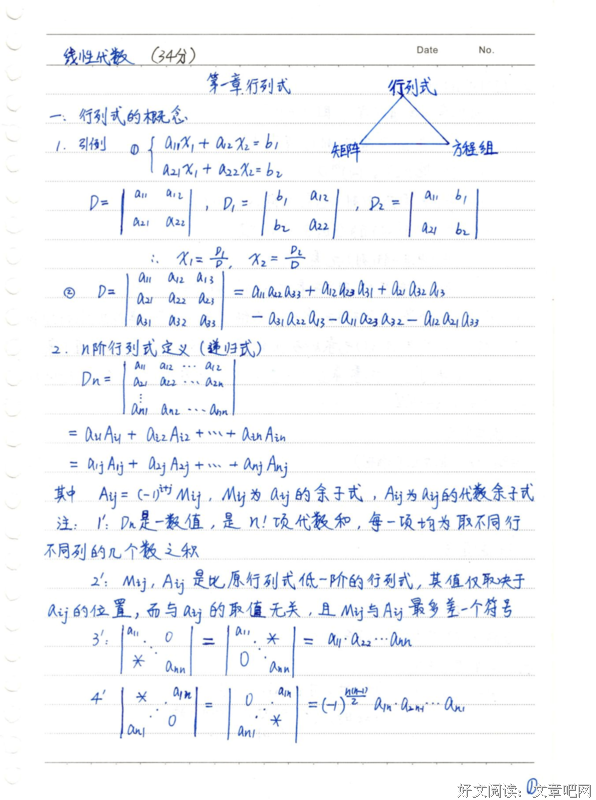 Date No.
线性代数 (34分)
第一章行列式
行列式
矩阵 方程组
一. 行列式的概念
1. 引例 ① { a11x1 + a12x2 = b1
a21x1 + a22x2 = b2
D = | a11 a12 | , D1 = | b1 a12 | , D2 = | a11 b1 |
| a21 a22 | | b2 a22 | | a21 b2 |
∴ x1 = D1/D, x2 = D2/D
② D = | a11 a12 a13 | = a11a22a33 + a12a23a31 + a21a32a13
| a21 a22 a23 |
| a31 a32 a33 | - a31a22a13 - a11a23a32 - a12a21a33
2. n阶行列式定义 (递归式)
Dn = | a11 a12 … a12 |
| a21 a22 … a2n |
| ⋮ |
| an1 an2 … ann |
= ai1Ai1 + ai2Ai2 + … + ainAin
= a1jA1j + a2jA2j + … + anjAnj
其中 Aij = (-1)^(i+j) Mij, Mij为aij的余子式, Aij为aij的代数余子式
注: 1': Dn是一数值, 是n!项代数和, 每一项均为取不同行
不同列的几个数之积
2': Mij, Aij 是比原行列式低一阶的行列式, 其值仅取决于
aij的位置, 而与aij的取值无关, 且Mij与Aij最多差一个符号
3': | a11 ⋱ 0 * ann | = | a11 ⋱ * 0 ann | = a11·a22…ann
4' | * a1n ⋰ an1 0 | = | 0 a1n ⋰ an1 * | = (-1)^(n(n-1)/2) a1n·a2n-1…an1
①
好文阅读: 文章吧网